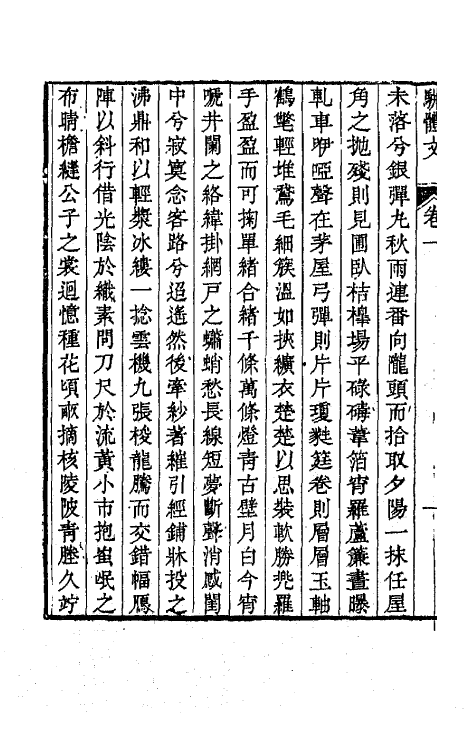 駢體文 卷一 一
未落兮銀彈九秋雨連番向隴頭而拾取夕陽一抹任屋
角之拋殘則見圃臥桔橰場平碌碡葦箔宵羅蘆簾晝曝
軋車咿啞聲在茅屋弓彈則片片瓊甤筳卷則層層玉軸
鶴氅輕堆鵞毛細簇溫如挾纊衣楚楚以思裝軟勝兠羅
手盈盈而可掬單緒合緒千條萬條燈青古壁月白今宵
唬井闌之絡緯掛網戶之蠨蛸愁長線短夢斷聲消感閨
中兮寂寞念客路兮迢遙然後牽紗著䌨引經鋪牀投之
沸鼎和以輕漿冰縷一捻雲機九張梭龍騰而交錯幅鴈
陣以斜行借光陰於纖素問刀尺於流黃小市抱蚩氓之
布晴檐縫公子之裳迴憶種花頃畝摘核陵陂青塍久竚